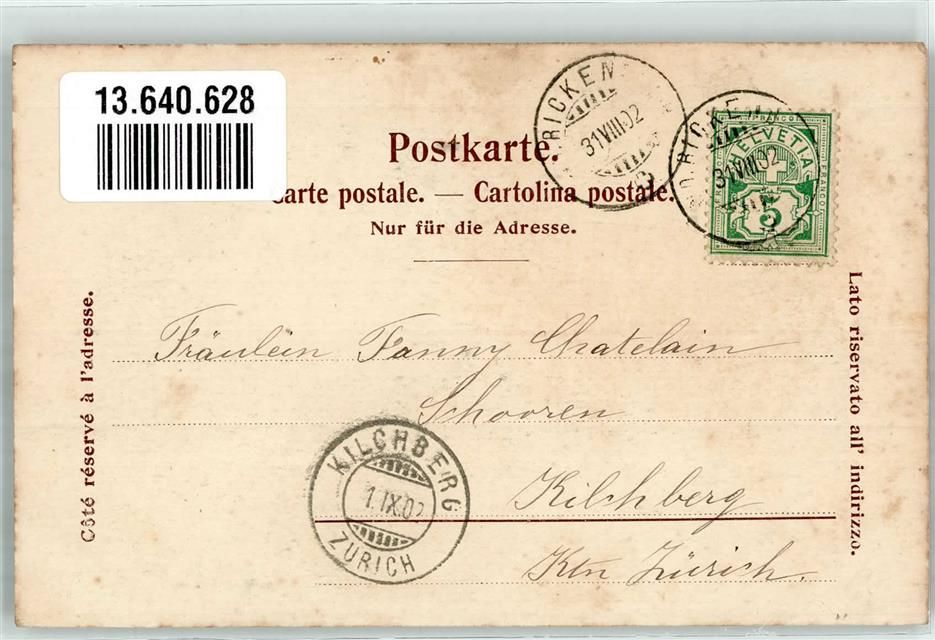 13.640.628
Postkarte.
Carte postale. — Cartolina postale.
Nur für die Adresse.
RICKEN
31 VIII 02
RICKEN
31 VIII 02
FRANCO
HELVETIA
5
Côté réservé à l'adresse.
Lato riservato all' indirizzo.
Fräulein Fanny Chatelain
Schooren
Kilchberg
Ktn Zürich.
KILCHBERG
1.IX.02
ZÜRICH